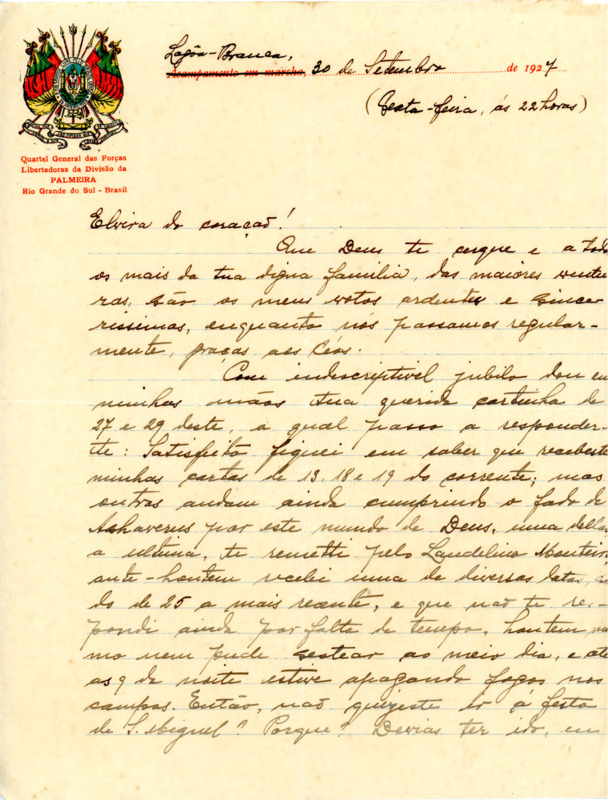 Lagôa-Branca,
Acampamento em marcha, 30 de Setembro de 1927
(Sexta-feira, ás 22 horas)
Quartel General das Forças
Libertadoras da Divisão da
PALMEIRA
Rio Grande do Sul - Brasil
Elvira do coração!
Que Deus te cerque e a todos
os mais da tua digna familia, das maiores ventu
ras, são os meus votos ardentes e since-
rissimos, enquanto nós passamos regular-
mente, graças aos Céos.
Com indescriptivel jubilo dou em
minhas mãos tua querida cartinha de
27 e 29 deste, a qual passo a responder-
te: Satisfeito fiquei em saber que recebeste
minhas cartas de 13, 18 e 19 do corrente; mas
outras andam ainda cumprindo o fado de
Ashaverus por este mundo de Deus, uma dellas,
a ultima, te remetti pelo Laudelino Monteiro
ante-hontem recebi uma de diversas datas,
do de 25 a mais recente, e que não te res-
pondi ainda por falta de tempo, hontem
mo nem pude sestear ao meio dia, e até
as 9 da noite estive apagando fogos nos
campos. Então, não quizeste ir á festa
de S. Miguel? Porque? Devias ter ido, em